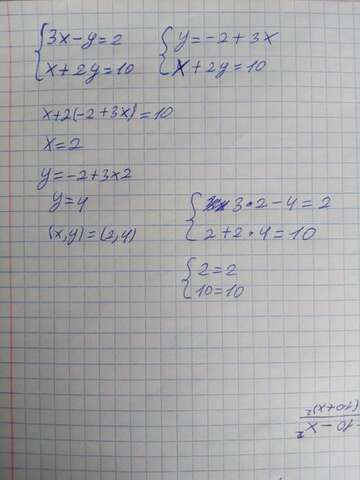 {3x-y=2
{x+2y=10
{y=-2+3x
{x+2y=10
x+2(-2+3x)=10
x=2
y=-2+3x2
y=4
(x,y)=(2,4)
{3·2-4=2
{2+2·4=10
{2=2
{10=10
10-x²
(10+x)²